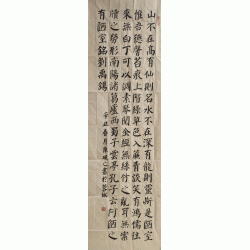 山不在高有仙則名水不在深有龍則靈斯是陋室
惟吾德馨苔痕上階綠草色入簾青談笑有鴻儒往
來無白丁可以調素琴閱金經無絲竹之亂耳無案
牘之勞形南陽諸葛廬西蜀子雲亭孔子云何陋之
有陋室銘劉禹錫
辛丑春月陳書於城